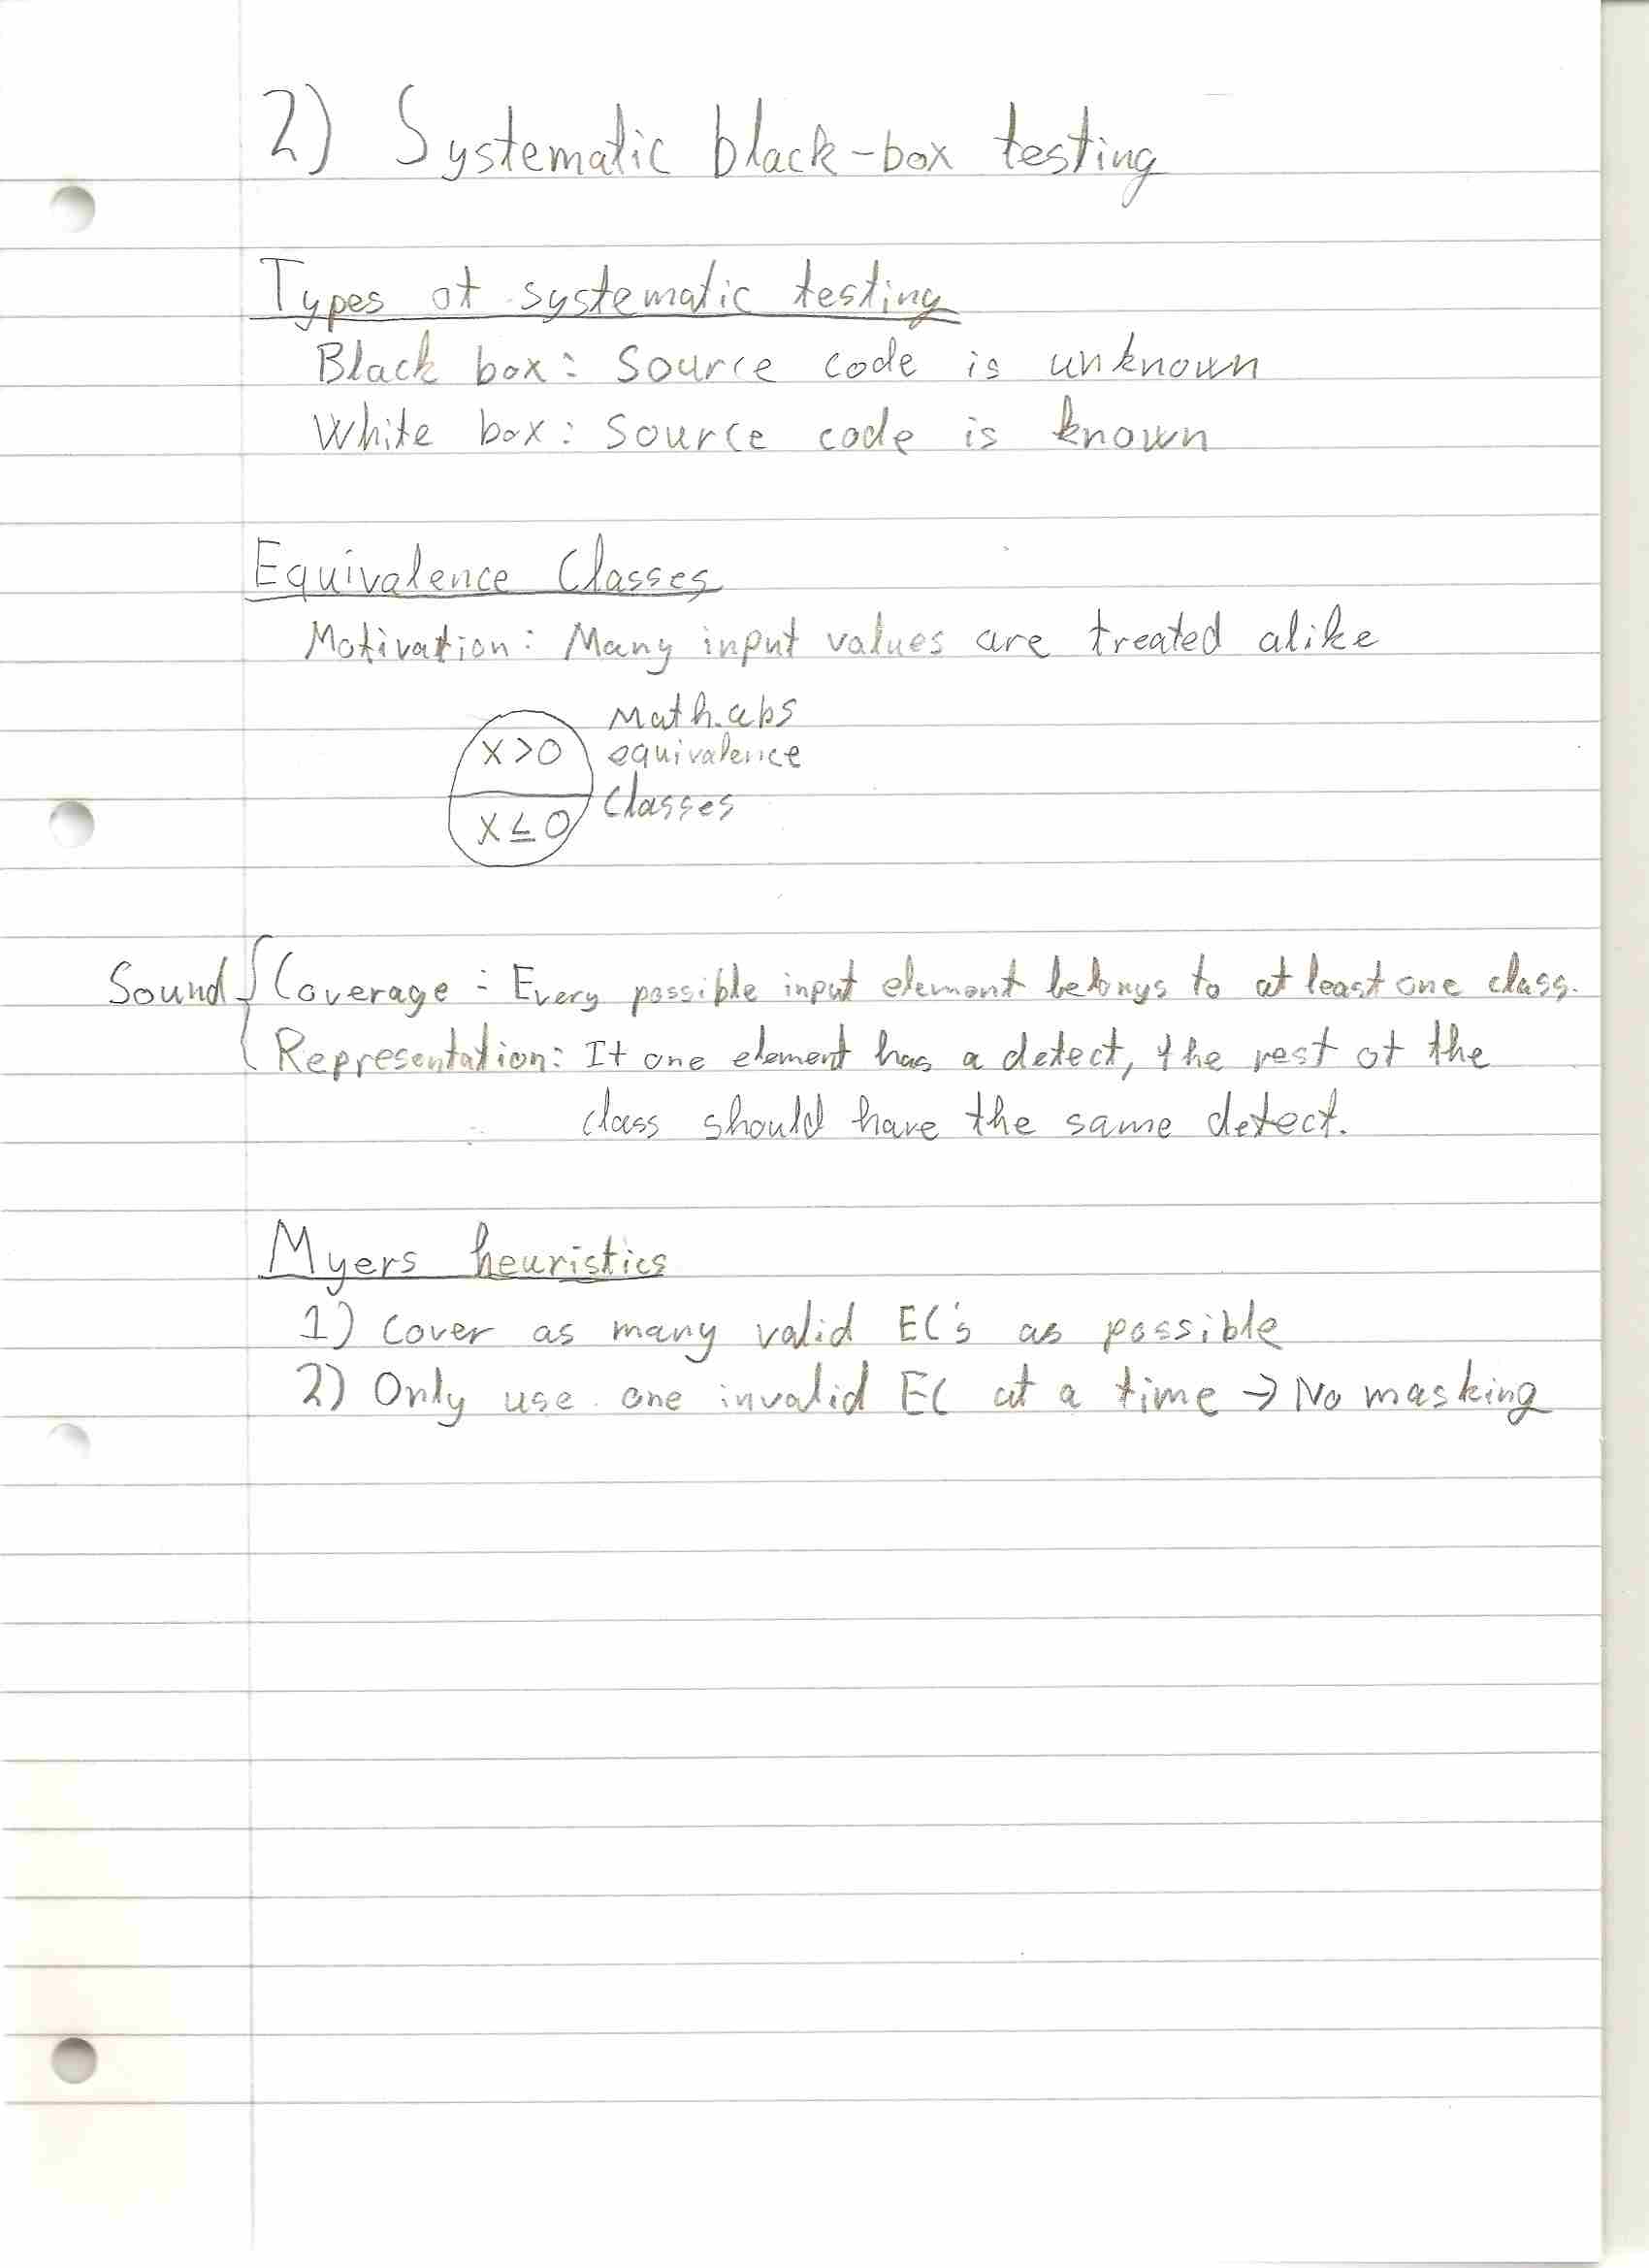 2) Systematic black-box testing
Types of systematic testing
Black box: Source code is unknown
White box: Source code is known
Equivalence Classes
Motivation: Many input values are treated alike
x>0
x≤0
Math.abs
equivalence
classes
Sound { Coverage: Every possible input element belongs to at least one class.
Representation: If one element has a defect, the rest of the
class should have the same defect.
Myers heuristics
1) Cover as many valid EC's as possible
2) Only use one invalid EC at a time → No masking